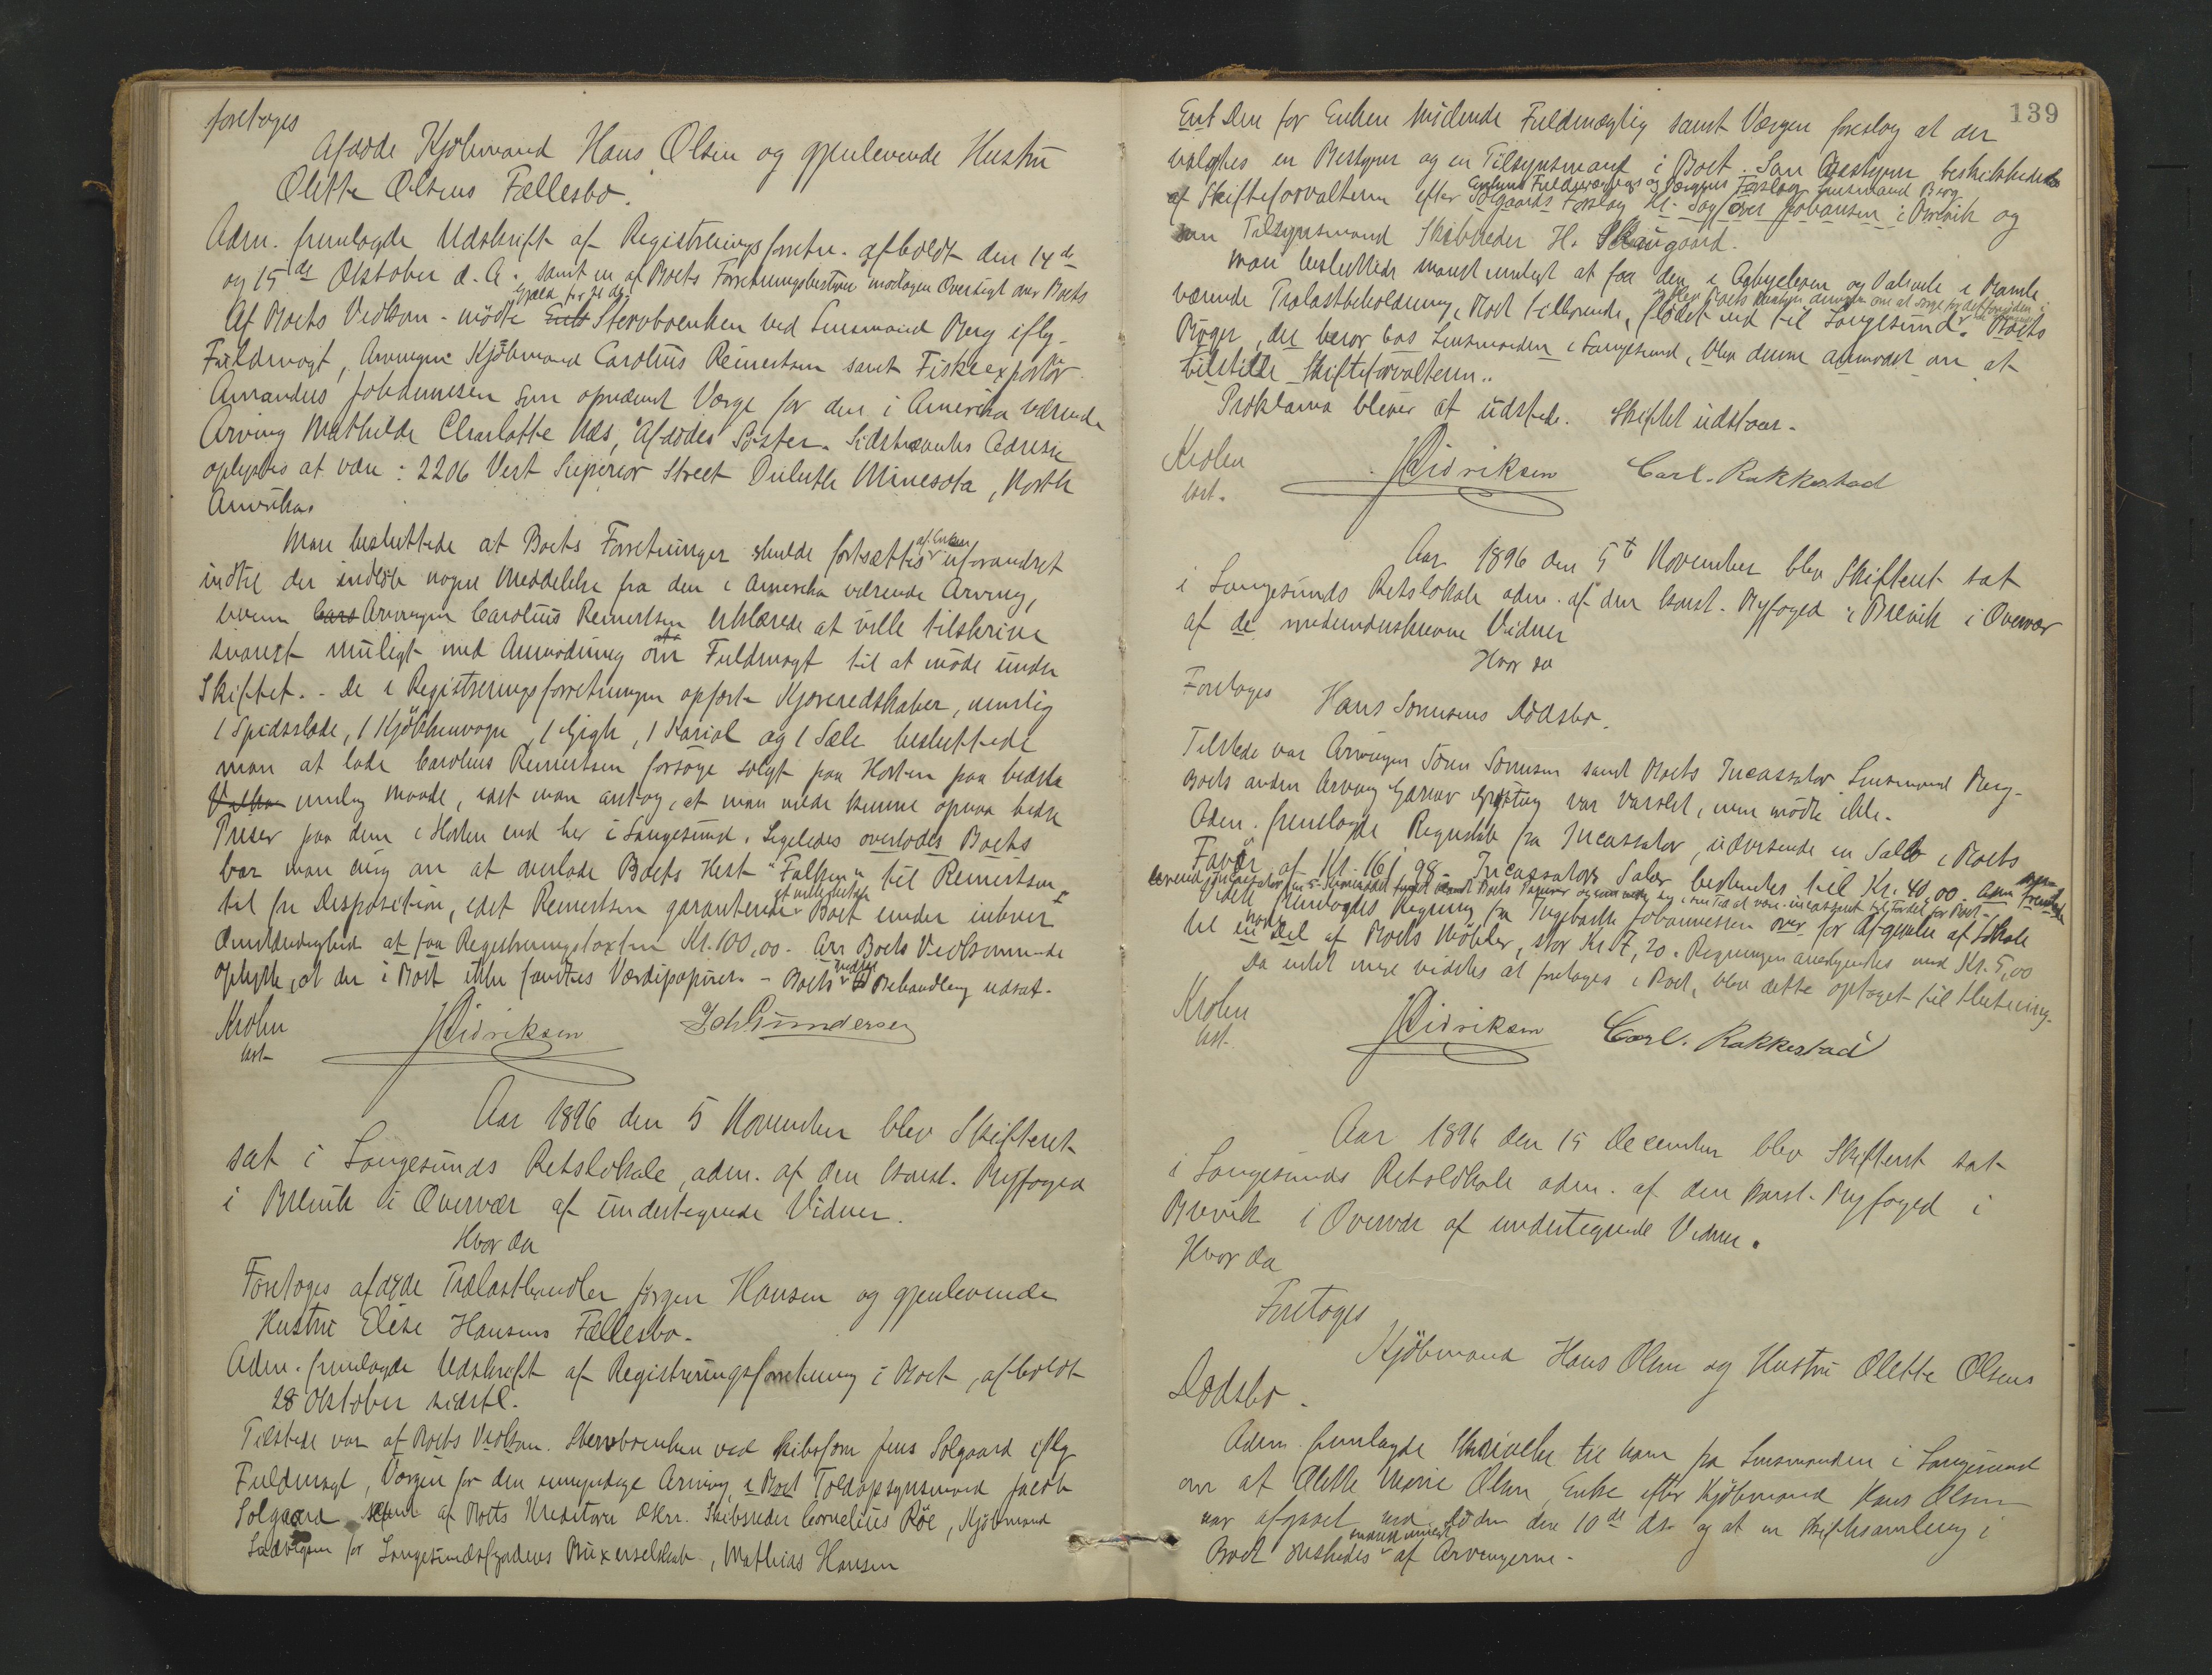 foretoges
Afdöde Kjöbmand Hans Olsen og gjenlevende Hustru
Olette Olsens Fællesbo.
Adm. fremlagde Udskrift af Registreringsforretn. afholdt den 14de
og 15de Oktober d. A. samt en af Boets Forretningsbestyrer modtagen Oversigt over Boets
Gjæld
Af Boets Vedkom. mödte Enk Stervboenken ved Lensmand Berg iflg.
Fuldmagt, Arvingen Kjöbmand Carolius Reinertsen samt Fiskeexportör
Amandus Johannesen som opnævnt Værge for den i Amerika værende
Arving Mathilde Charlotte Næs, Afdödes Söster. Sidstnævntes Adresse
oplystes at være: 2206 Vest Superior Street Duluth Minesota, North
Amerika.
Man besluttede at Boets Forretninger skulde fortsættes af Enken uforandret
indtil der indlöb nogen Meddelelse fra den i Amerika værende Arving,
hvem Caro Arvingen Carolius Reinertsen erklærede at ville tilskrive
snarest muligt med Anmodning om Fuldmagt til at möde under
Skiftet. - De i Registreringsforretningen opförte Kjöreredskaber, nemlig
1 Spidsslæde, 1 Kjökkenvogn, 1 Gigh, 1 Kariol og 1 Sæle besluttede
man at lade Carolius Reinertsen forsöge solgt paa Horten paa bedste
mulig Maade, idet man antog, at man vilde kunne opnaa bedre
Priser paa dem i Horten end her i Langesund. Ligeledes overlodes Boets
bar man enig om at overlade Boets Hest "Falken" til Reinertsen
til fri Disposition, idet Reinertsen garanterede Boet under enhver
Omstændighed at faa Registreringstaxten Kr. 100,00. Arv Boets Vedkommende
oplyste, at der i Boet ikke fandtes Værdipapirer. - Boets videre Behandling udsat.
Krohn
const.
HDidriksen
Joh Gundersen
Aar 1896 den 5 November blev Skifteret
sat i Langesunds Retslokale, adm. af den const. Byfoged
i Brevik i Overvær af undertegnede Vidner.
Hvor da
Foretoges afdöde Trælasthandler Jörgen Hansen og gjenlevende
Hustru Elise Hansens Fællesbo.
Adm. fremlagde Udskrift af Registreringsforretning i Boet, afholdt
28 Oktober sidstl.
Tilstede var af Boets Vedkom. Stervboenken ved Skibsförer Jens Solgaard iflg
Fuldmagt, Værgen for den umyndige Arving i Boet Toldopsynsmand Jacob
Solgaard samt af Boets Kreditorer Skibsreder Cornelius Röe, Kjöbmand
Ludvigsen for Langesundsfjordens Buxerselskab, Mathias Hansen
139
Enk Den for Enken mödende Fuldmægtig samt Værgen foreslog at der
valgtes en Bestyrer og en Tilsynsmand i Boet. Som Bestyrer beskikkedes
Enkens Fuldmægtigs og Værgens Forslag Lensmand Berg
af Skifteforvalteren efter Solgaards Forslag Hr. Sagförer Johansen i Brevik og
som Tilsynsmand Skibsreder H. Skaugaard.
Man besluttede snarest muligt at faa den i og i Bamle
værende Trælastbeholdning, Boet tilhörende, flödet ned til Langesund. Boets
Böger, der beror hos Lensmanden i Langesund, blev denne anmodet om at
tilstille Skifteforvalteren.
Proklama bliver at udstede. Skiftet udstaar.
Krohn
const.
HDidriksen
Carl. Rakkestad
Aar 1896 den 5te November blev Skifteret sat
i Langesunds Retslokale adm. af den const. Byfoged i Brevik i Overvær
af de medunderskrevne Vidner
Hvor da
Foretoges
Hans Sörensens Dödsbo.
Tilstede var Arvingen Sören Sörensen samt Boets Incassator Lensmand Berg.
Boets anden Arving var varslet, men mödte ikke.
Adm. fremlagde Regnskab fra Incassator, udvisende en Saldo i Boets
Favör af Kr. 161,98. Incassators Salær bestemtes til Kr. 40,00.
Videre fremlagdes Regning fra Ingebarth Johannessen over for Afgivelse af Lokale
til en Del af Boets Möbler, stor Kr. 7,20. Regningen anerkjendtes med Kr. 5,00
Da intet mere vidstes at foretages i Boet, blev dette optaget til Slutning.
Krohn
const.
HDidriksen
Carl. Rakkestad
Aar 1896 den 15 December blev Skifteret sat
i Langesunds Retslokale adm. af den const. Byfoged i
Brevik i Overvær af undertegnede Vidner.
Hvor da
Foretoges
Kjöbmand Hans Olsen og Hustru Olette Olsens
Dödsbo.
Adm. fremlagde Skrivelse til ham fra Lensmanden i Langesund
om at Olette Marie Olsen, Enke efter Kjöbmand Hans Olsen
var afgaaet ved Döden den 10de ds. og at en Skiftesamling i
Boet önskedes snarest muligt af Arvingerne.